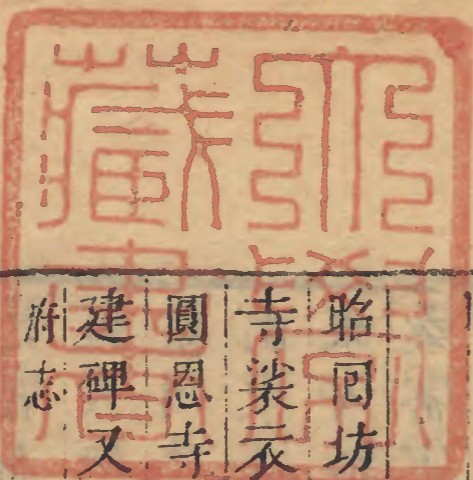 昭囘坊
寺裟衣
圓恩寺
建碑又
府志
藏書